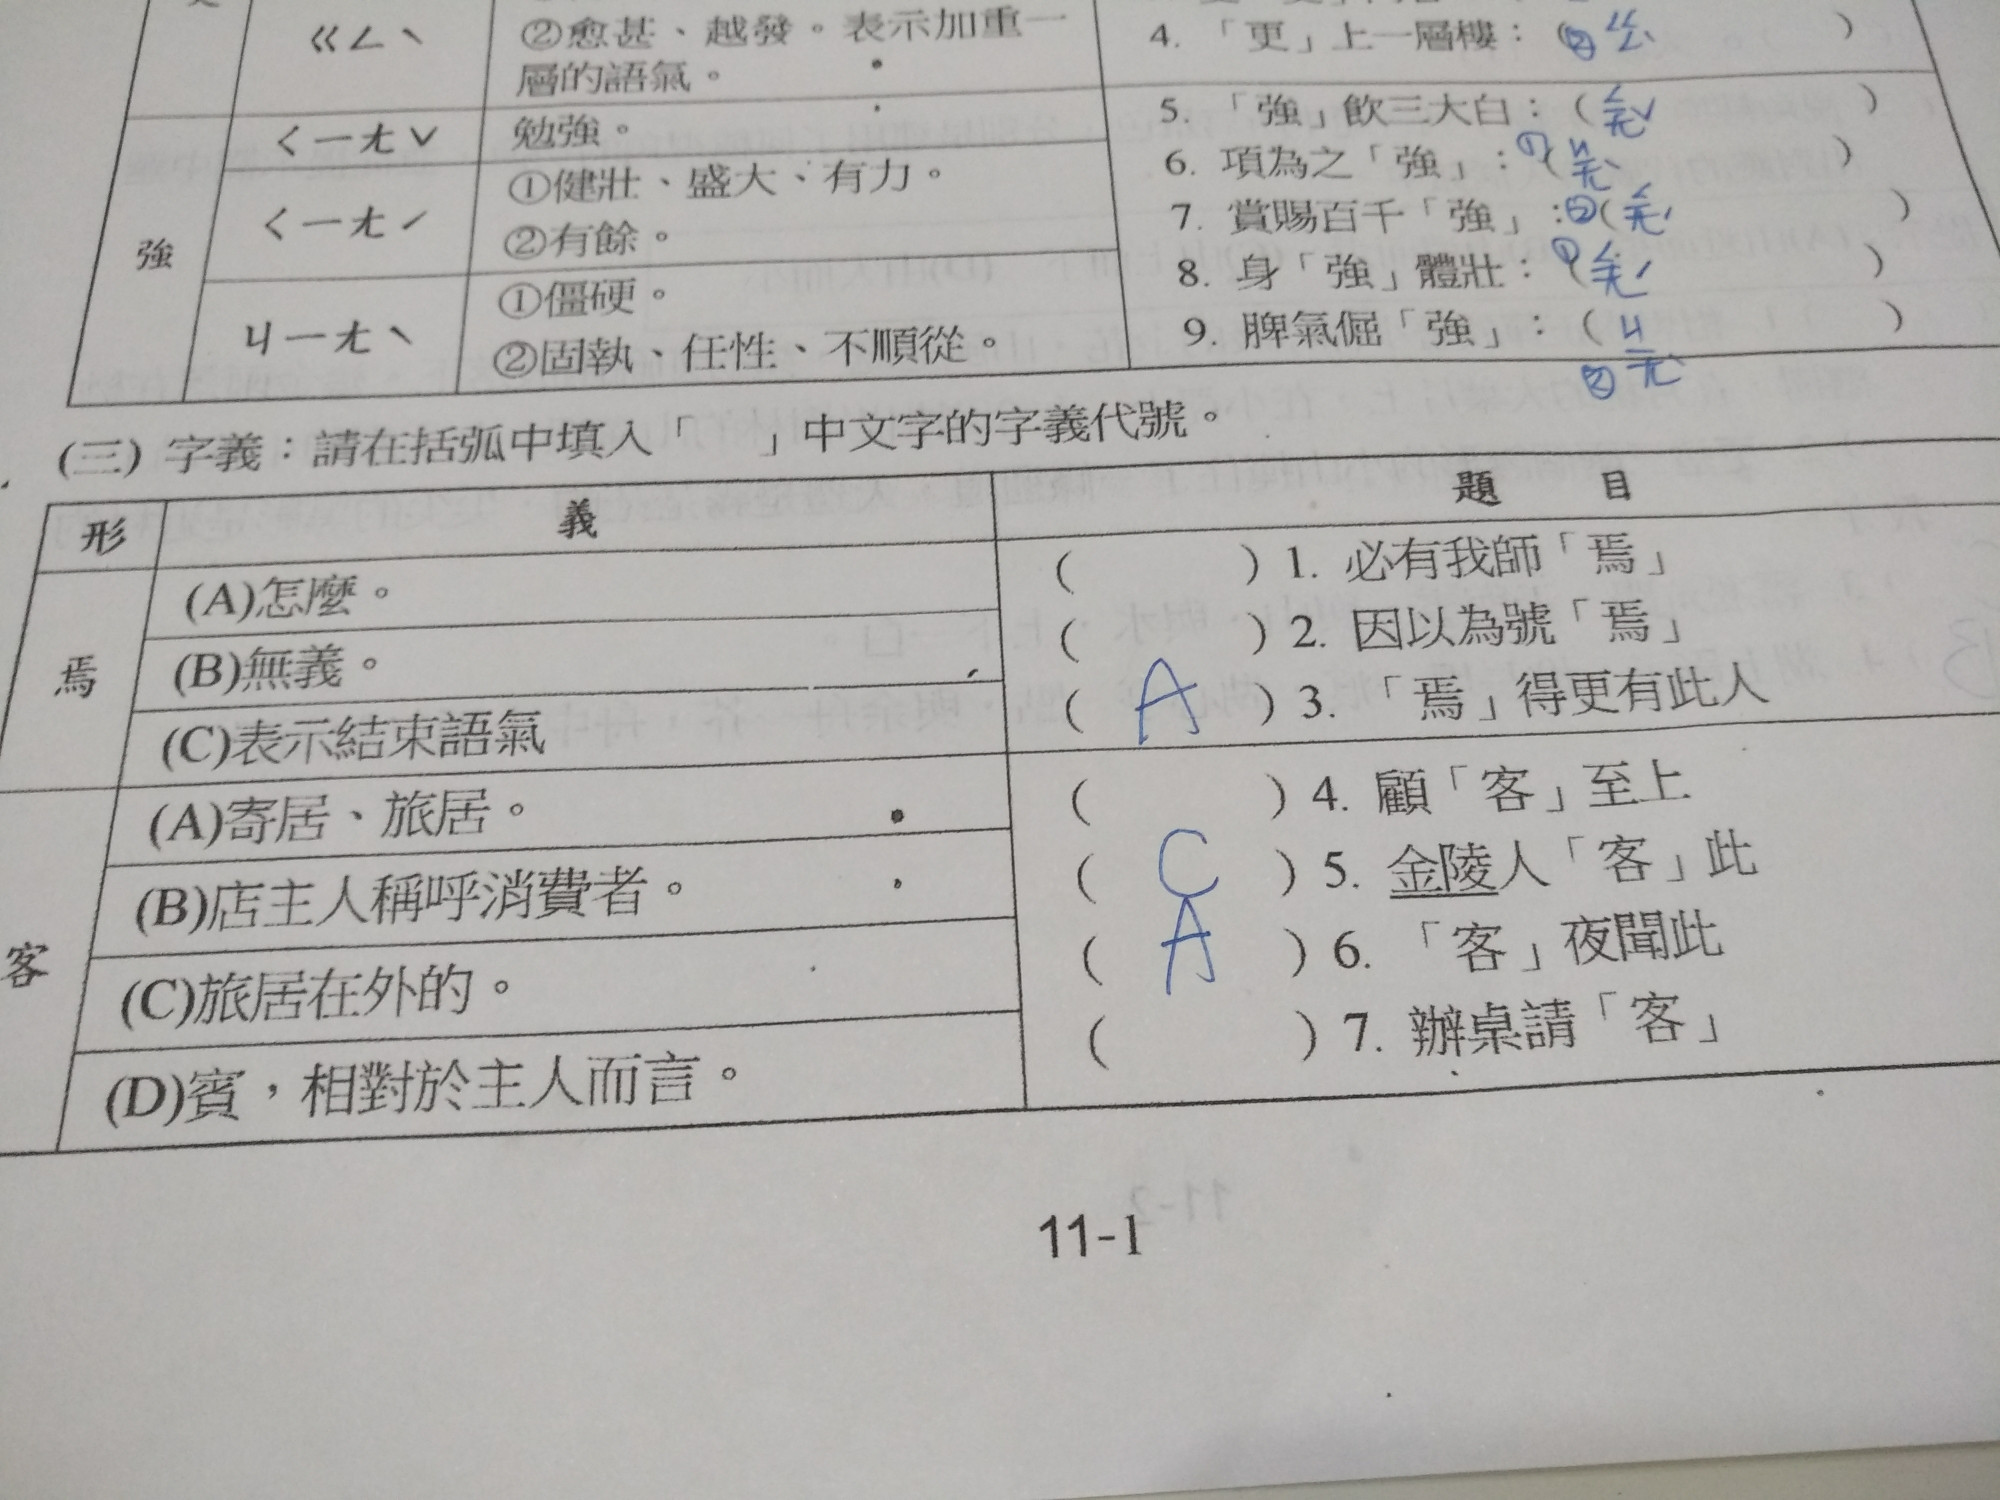 ㄍㄥˋ
②愈甚、越發。表示加重一
層的語氣。
4. 「更」上一層樓：(②ㄍㄥˋ)
強
ㄑㄧㄤˇ
勉強。
ㄑㄧㄤˊ
①健壯、盛大、有力。
②有餘。
ㄐㄧㄤˋ
①僵硬。
②固執、任性、不順從。
5. 「強」飲三大白：(ㄑㄧㄤˇ)
6. 項為之「強」：①(ㄐㄧㄤˋ)
7. 賞賜百千「強」：②(ㄑㄧㄤˊ)
8. 身「強」體壯：①(ㄑㄧㄤˊ)
9. 脾氣倔「強」：(ㄐㄧㄤˋ)
②
(三) 字義：請在括弧中填入「　」中文字的字義代號。
形
義
題　目
焉
(A)怎麼。
(B)無義。
(C)表示結束語氣
(　)1. 必有我師「焉」
(　)2. 因以為號「焉」
( A )3. 「焉」得更有此人
客
(A)寄居、旅居。
(B)店主人稱呼消費者。
(C)旅居在外的。
(D)賓，相對於主人而言。
(　)4. 顧「客」至上
( C )5. 金陵人「客」此
( A )6. 「客」夜聞此
(　)7. 辦桌請「客」
11-1